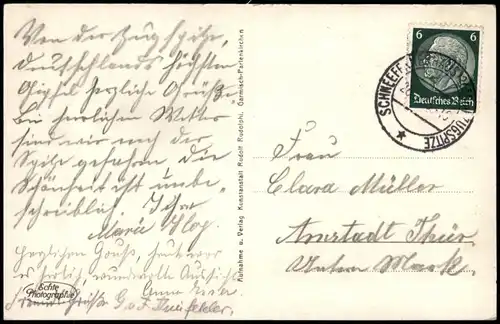 Von der Zugspitze,
Deutschlands höchsten
Gipfel herzliche Grüße.
Bei herrlichem Wetter
sind wir nach der
Spitze gefahren die
Schönheit ist unbe-
schreiblich. Ihre
Maria
Herzlichen Gruß, heute war
es herrlich, wundervolle Aussicht
Anna
Grüße G. u. F.
Echte
Photographie
Aufnahme u. Verlag Kunstanstalt Rudolf Rudolphi, Garmisch-Partenkirchen
6 6
Deutsches Reich
SCHNEEF
ZUGSPITZE
Frau
Clara Müller
Arnstadt Thür.
Unterm Markt.